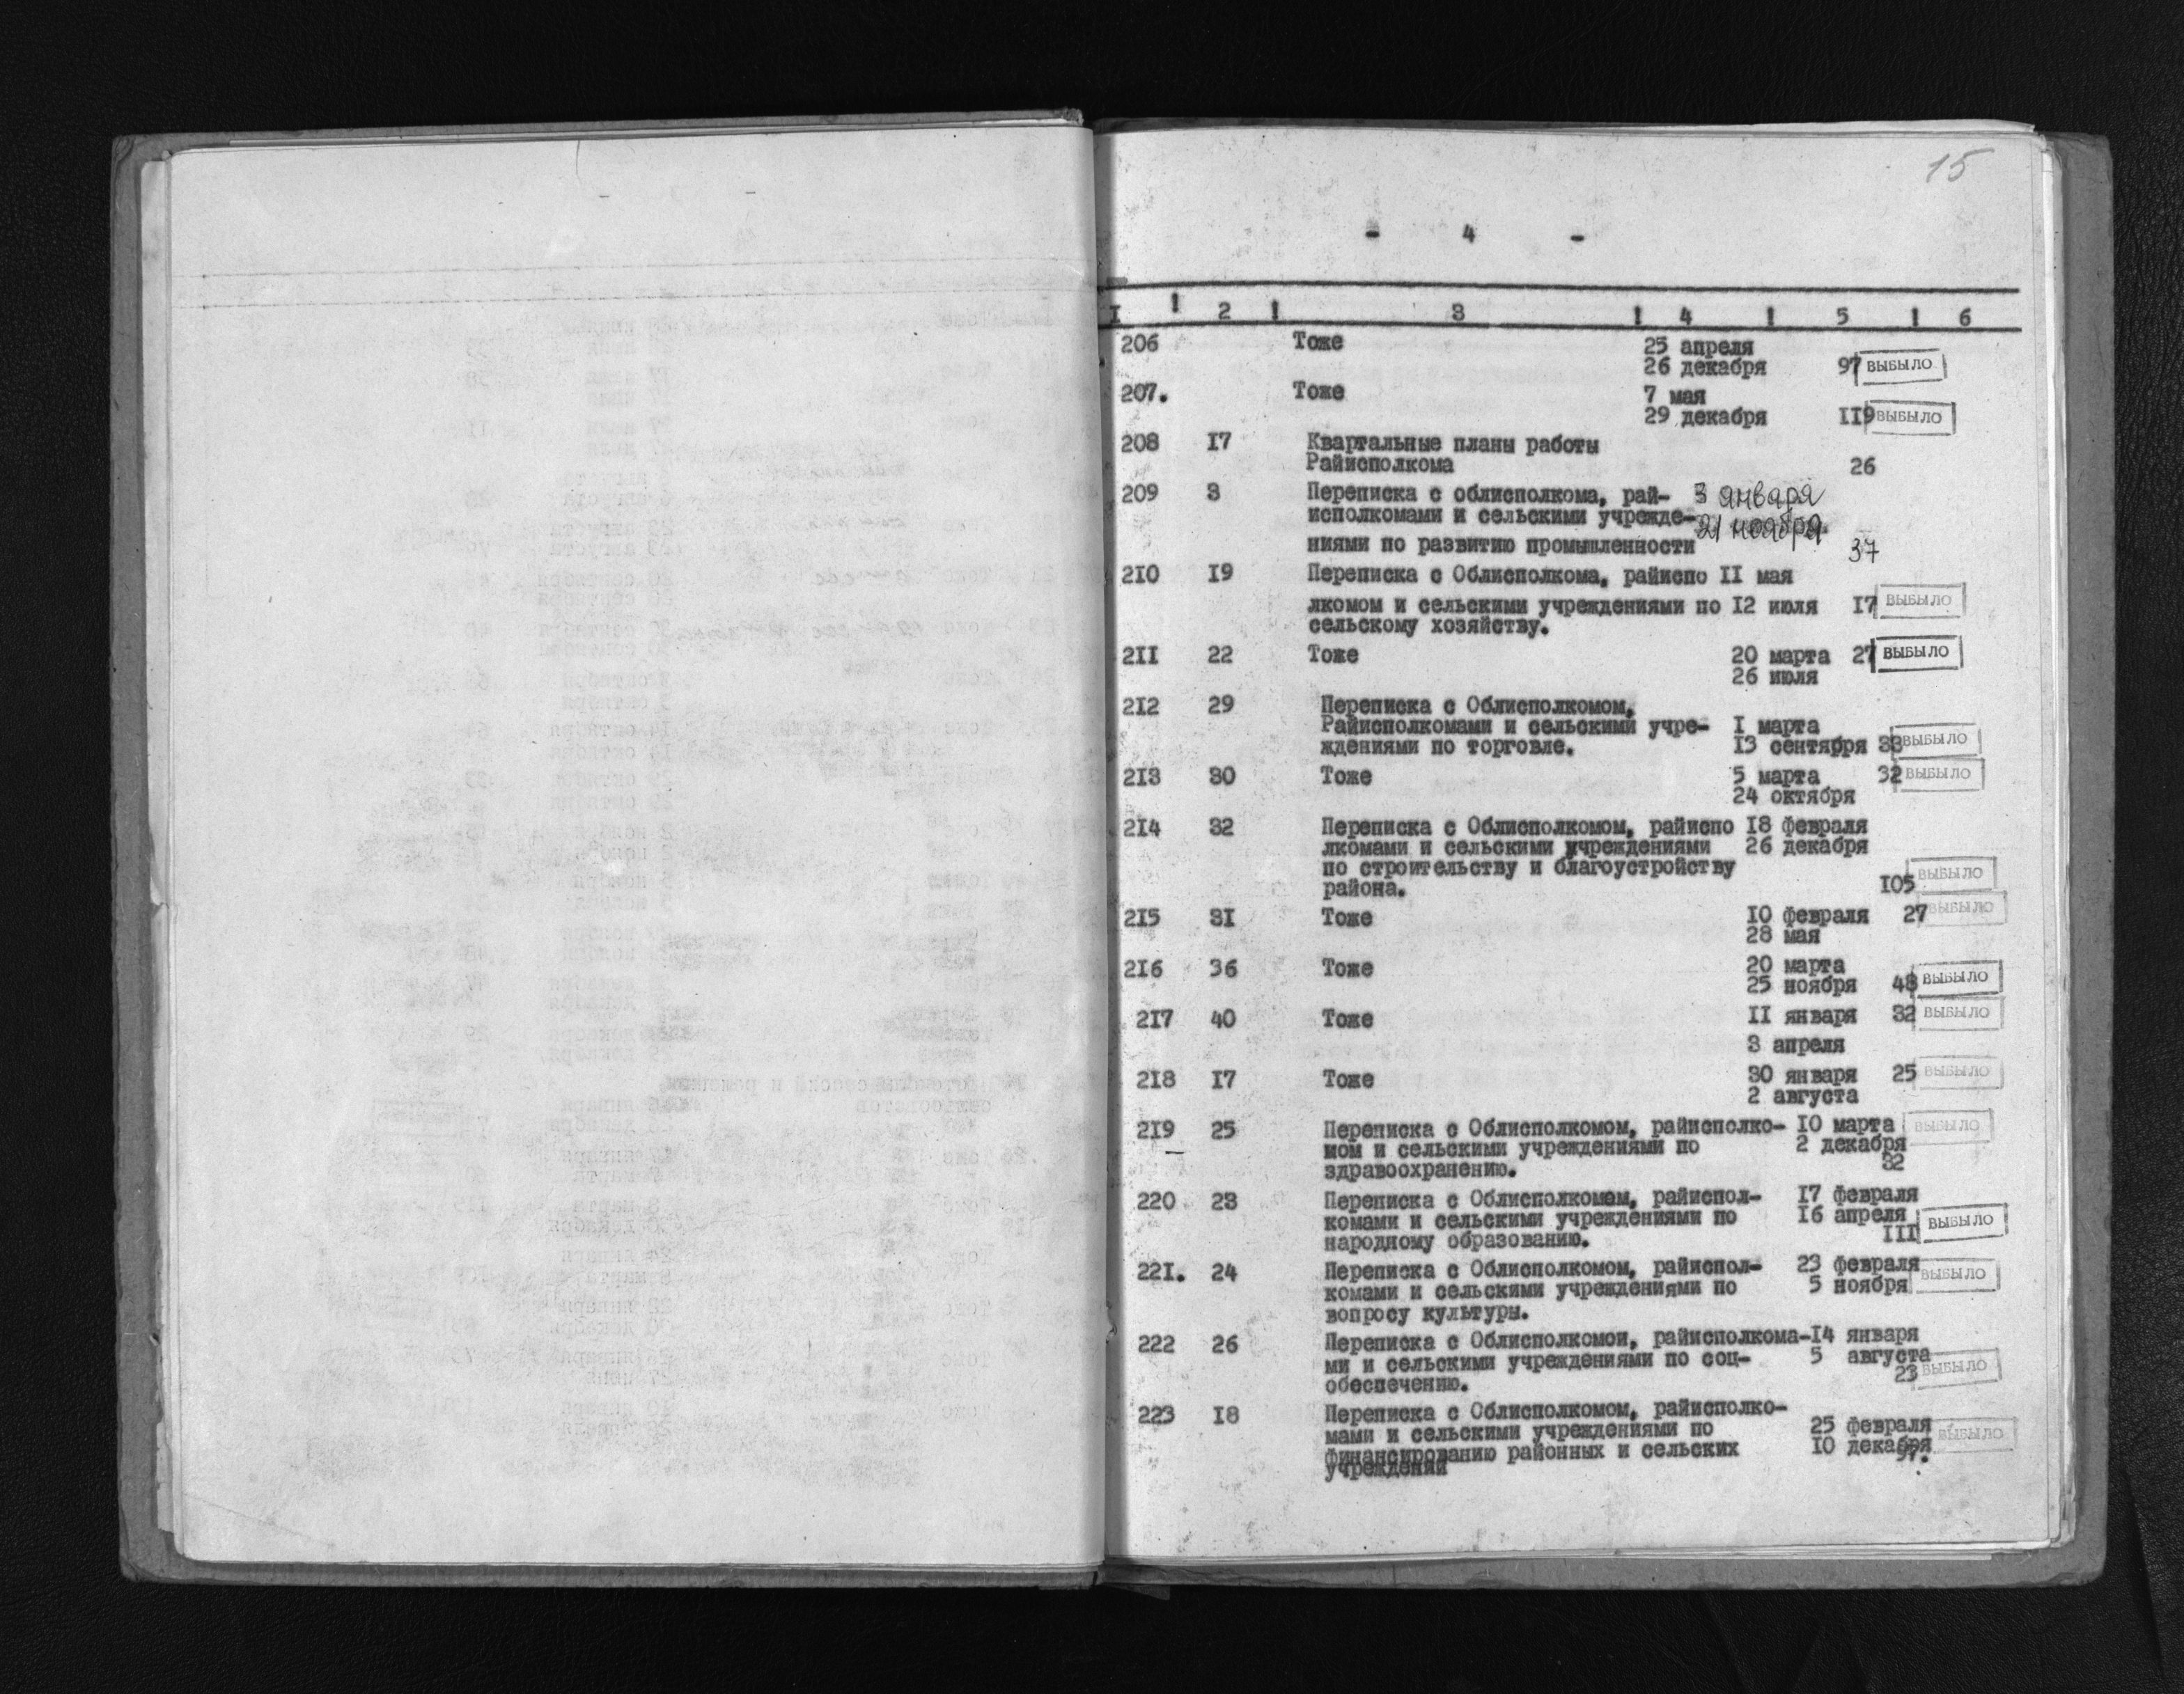 15
- 4 -
I ! 2 ! 3 ! 4 ! 5 ! 6
206 Тоже 25 апреля
26 декабря 97 ВЫБЫЛО
207. Тоже 7 мая
29 декабря II9 ВЫБЫЛО
208 I7 Квартальные планы работы
Райисполкома 26
209 3 Переписка с облисполкома, рай- 3 января
исполкомами и сельскими учрежде- 21 ноября
ниями по развитию промышленности 37
210 I9 Переписка с Облисполкома, райиспо II мая
лкомом и сельскими учреждениями по I2 июля I7 ВЫБЫЛО
сельскому хозяйству.
2II 22 Тоже 20 марта 27 ВЫБЫЛО
26 июля
2I2 29 Переписка с Облисполкомом,
Райисполкомами и сельскими учре- I марта
ждениями по торговле. I3 сентября 33 ВЫБЫЛО
2I3 30 Тоже 5 марта 32 ВЫБЫЛО
24 октября
2I4 32 Переписка с Облисполкомом, райиспо I8 февраля
лкомами и сельскими учреждениями 26 декабря
по строительству и благоустройству
района. I05 ВЫБЫЛО
2I5 3I Тоже I0 февраля 27 ВЫБЫЛО
28 мая
2I6 36 Тоже 20 марта
25 ноября 48 ВЫБЫЛО
2I7 40 Тоже II января 32 ВЫБЫЛО
3 апреля
2I8 I7 Тоже 30 января 25 ВЫБЫЛО
2 августа
2I9 25 Переписка с Облисполкомом, райисполко- I0 марта ВЫБЫЛО
мом и сельскими учреждениями по 2 декабря
здравоохранению. 32
220 23 Переписка с Облисполкомам, райиспол- I7 февраля
комами и сельскими учреждениями по I6 апреля ВЫБЫЛО
народному образованию. III
22I. 24 Переписка с Облисполкомом, райиспол- 23 февраля
комами и сельскими учреждениями по 5 ноября ВЫБЫЛО
вопросу культуры.
222 26 Переписка с Облисполкомои, райисполкома- I4 января
ми и сельскими учреждениями по соц- 5 августа
обеспечению. 23 ВЫБЫЛО
223 I8 Переписка с Облисполкомом, райисполко-
мами и сельскими учреждениями по 25 февраля
финансированию районных и сельских I0 декабря ВЫБЫЛО
учреждений